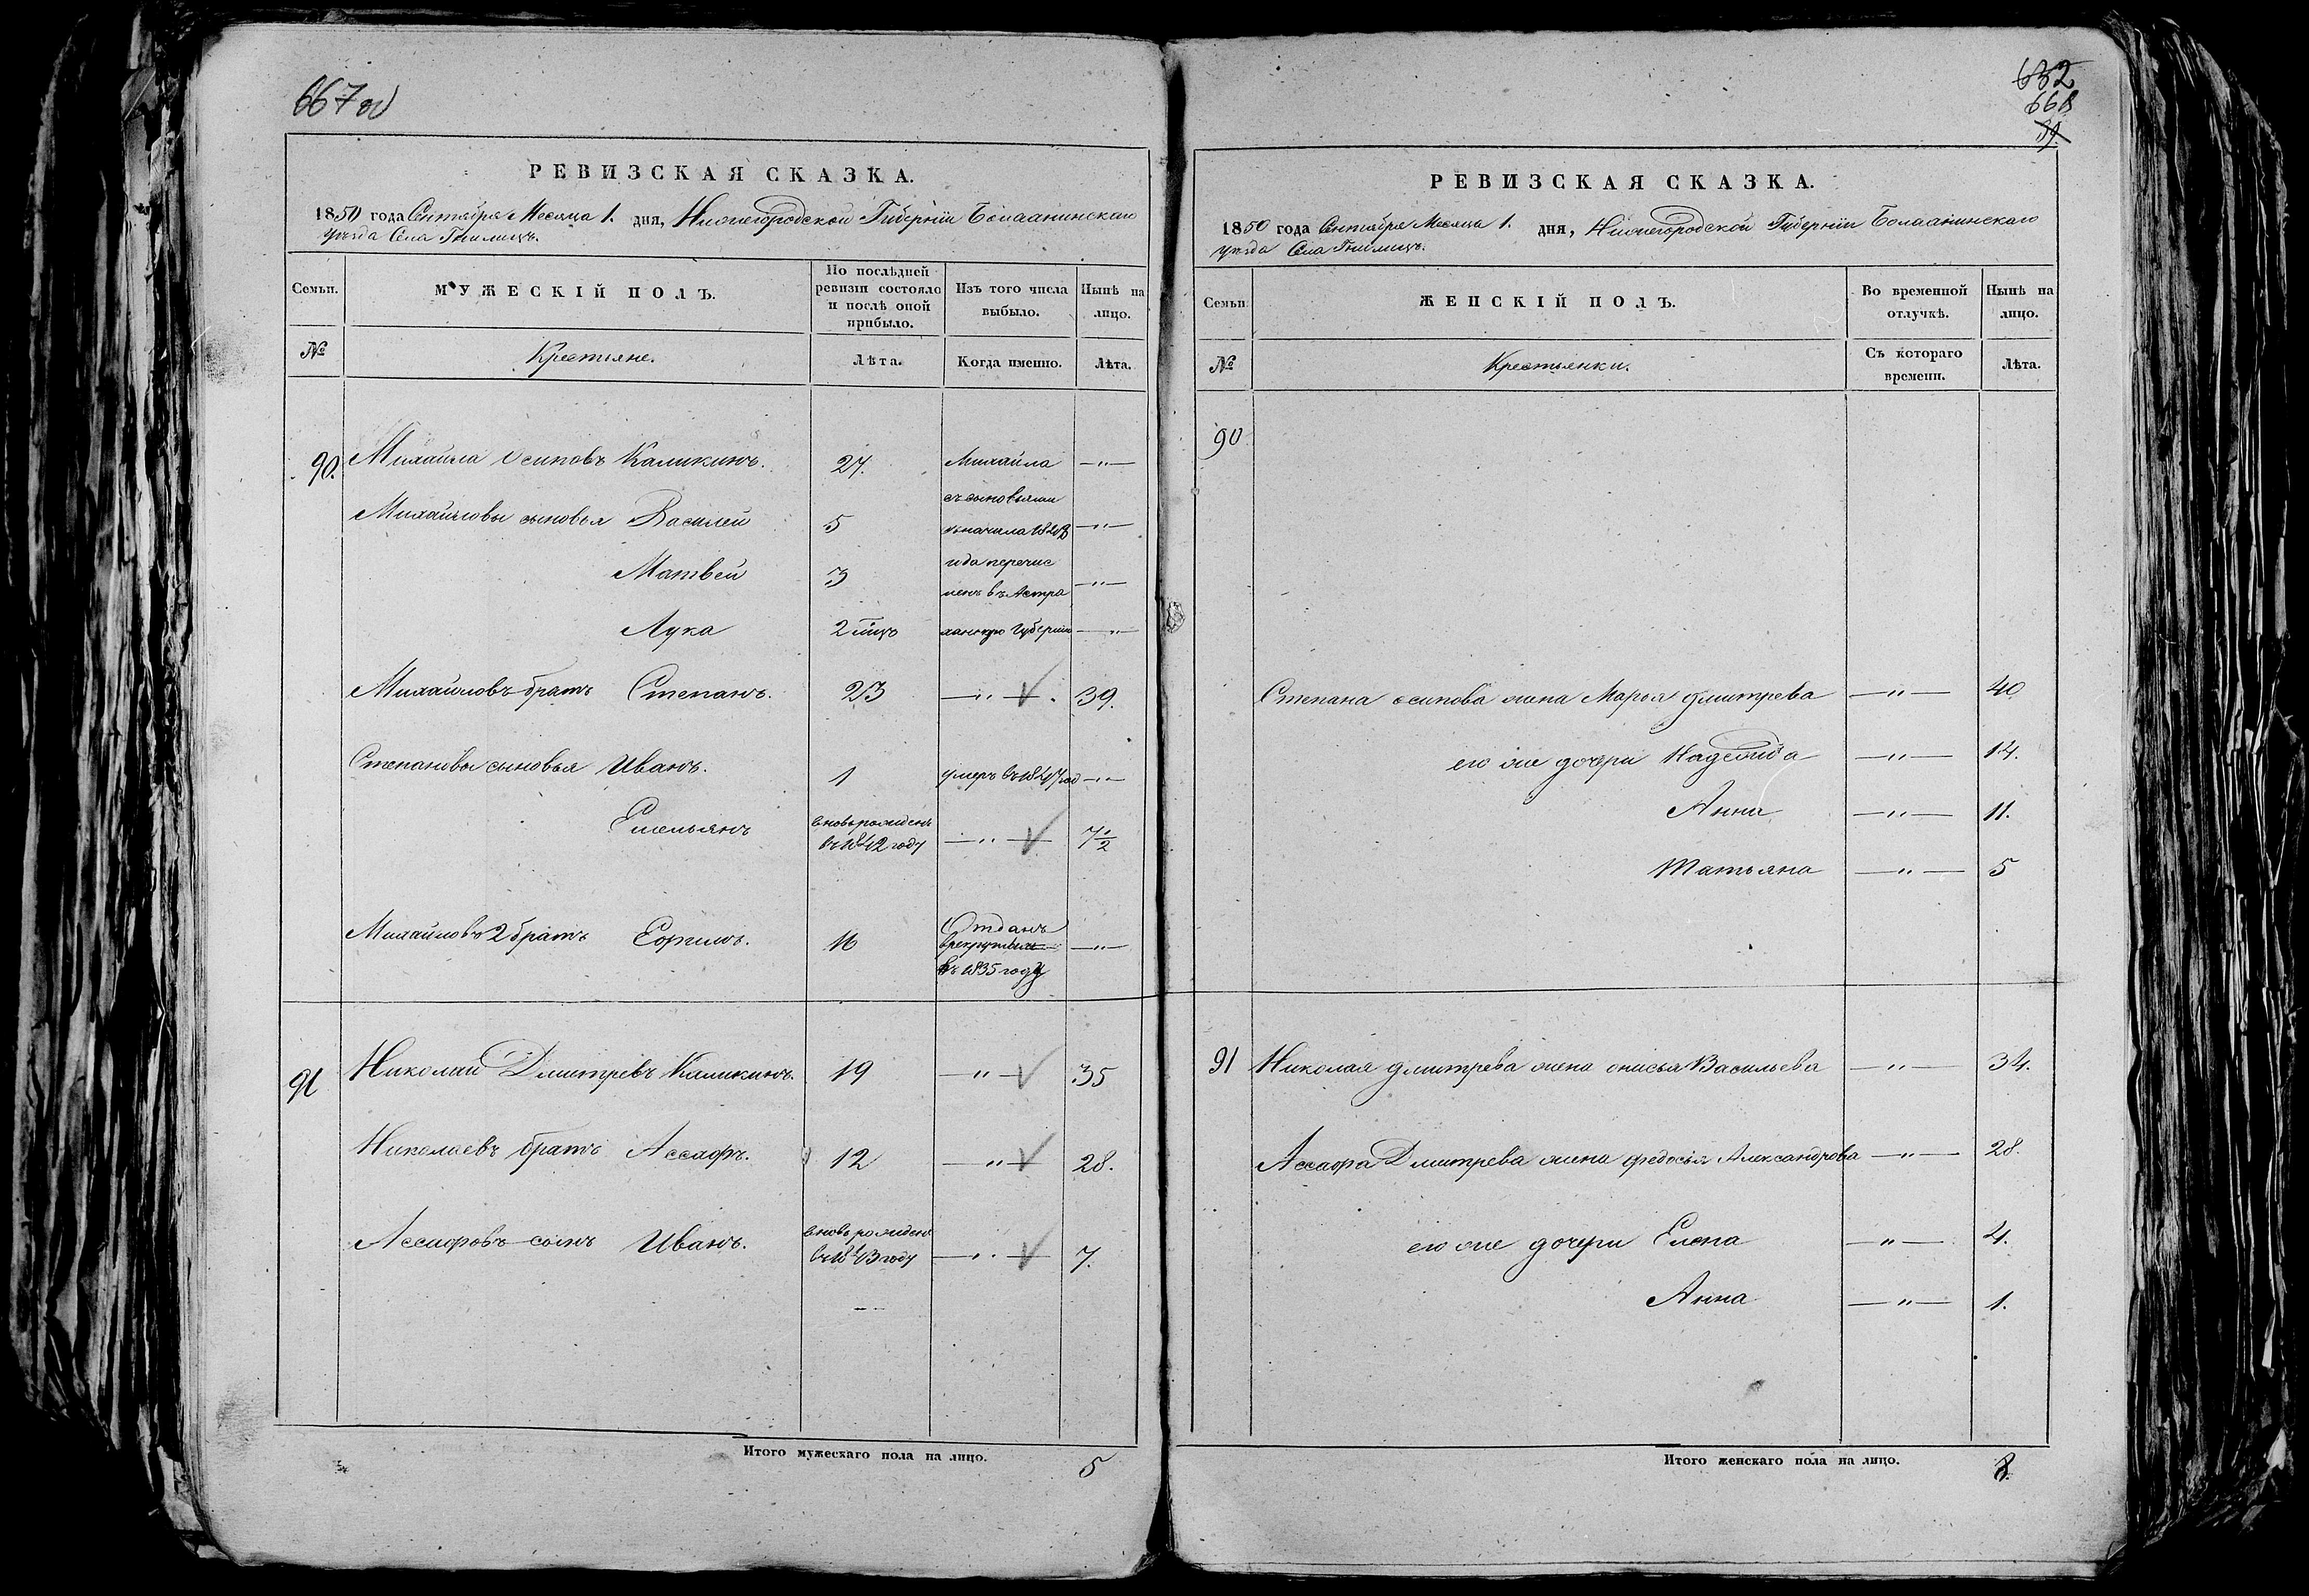 667 об
РЕВИЗСКАЯ СКАЗКА.
1850 года Сентября Месяца 1. дня, Нижегородской Губернии Балаанинскаго
уѣзда Села Гнилицъ.
Семьи.
МУЖЕСКІЙ ПОЛЪ.
По послѣдней
ревизіи состояло
и послѣ оной
прибыло.
Изъ того числа
выбыло.
Нынѣ на
лицо.
№
Крестьяне.
Лѣта.
Когда именно.
Лѣта.
90. Михайла Осиповъ Каликинъ. 27. Михайла —"—
съ сыновьями
Михайловы сыновья Василей 5 —"—
Матвей 3 перечис —"—
ленъ въ Астра
Лука 2 мцъ ханскую Губернію —"—
Михайловъ братъ Степанъ. 23 —"— 39.
Степановы сыновья Иванъ. 1 умеръ въ 1847 год —"—
Емельянъ вновь рожденъ
въ 1842 году —"— 7½
Михайловъ 2 братъ 16 Отданъ
в рекруты —"—
въ 1835 году
91 Николай Дмитревъ Каликинъ. 19 —"— 35
Николаевъ братъ Ассафъ. 12 —"— 28.
Ассафовъ сынъ Иванъ. вновь рожденъ
въ 1843 году —"— 7.
Итого мужескаго пола на лицо. 5
632
668
РЕВИЗСКАЯ СКАЗКА.
1850 года Сентября Месяца 1. дня, Нижегородской Губернии Балаанинскаго
уѣзда Села Гнилицъ.
Семьи
ЖЕНСКІЙ ПОЛЪ.
Во временной
отлучкѣ.
Нынѣ на
лицо.
№
Крестьянки.
Съ котораго
времени.
Лѣта.
90
Степана осипова жена Марья дмитрева —"— 40
его же дочери Надежда —"— 14.
Анна —"— 11.
Татьяна —"— 5
91 Николая дмитрева жена онисья Васильева —"— 34.
Ассафа Дмитрева жена федосья Александрова —"— 28.
его же дочери Елена —"— 4.
Анна —"— 1.
Итого женскаго пола на лицо. 8.